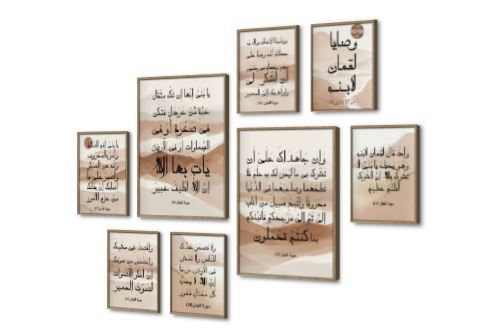 وصايا
لقمان
لابنه
ووصينا الإنسان بوالديه
حملته أمه وهنا على
وهن وفصاله في عامين
أن اشكر لي
ولوالديك إلي المصير
يا بني إنها إن تك مثقال
حبة من خردل فتكن
في صخرة أو في
السماوات أو في الأرض
يأت بها الله
إن الله لطيف خبير
سورة لقمان
وإن جاهداك على أن
تشرك بي ما ليس لك به علم فلا
تطعهما وصاحبهما في الدنيا
معروفا واتبع سبيل من أناب
إلي ثم إلي مرجعكم فأنبئكم
بما كنتم تعملون
سورة لقمان
وإذ قال لقمان لابنه
وهو يعظه يا بني لا
تشرك بالله إن الشرك
لظلم عظيم
سورة لقمان
يا بني أقم الصلاة
وأمر بالمعروف
وانه عن المنكر
واصبر على ما
أصابك إن ذلك
من عزم الأمور
سورة لقمان
ولا تصعر خدك
للناس ولا تمش
في الأرض مرحا
إن الله لا يحب
كل مختال فخور
سورة لقمان
واقصد في مشيك
واغضض من صوتك
إن أنكر الأصوات
لصوت الحمير
سورة لقمان